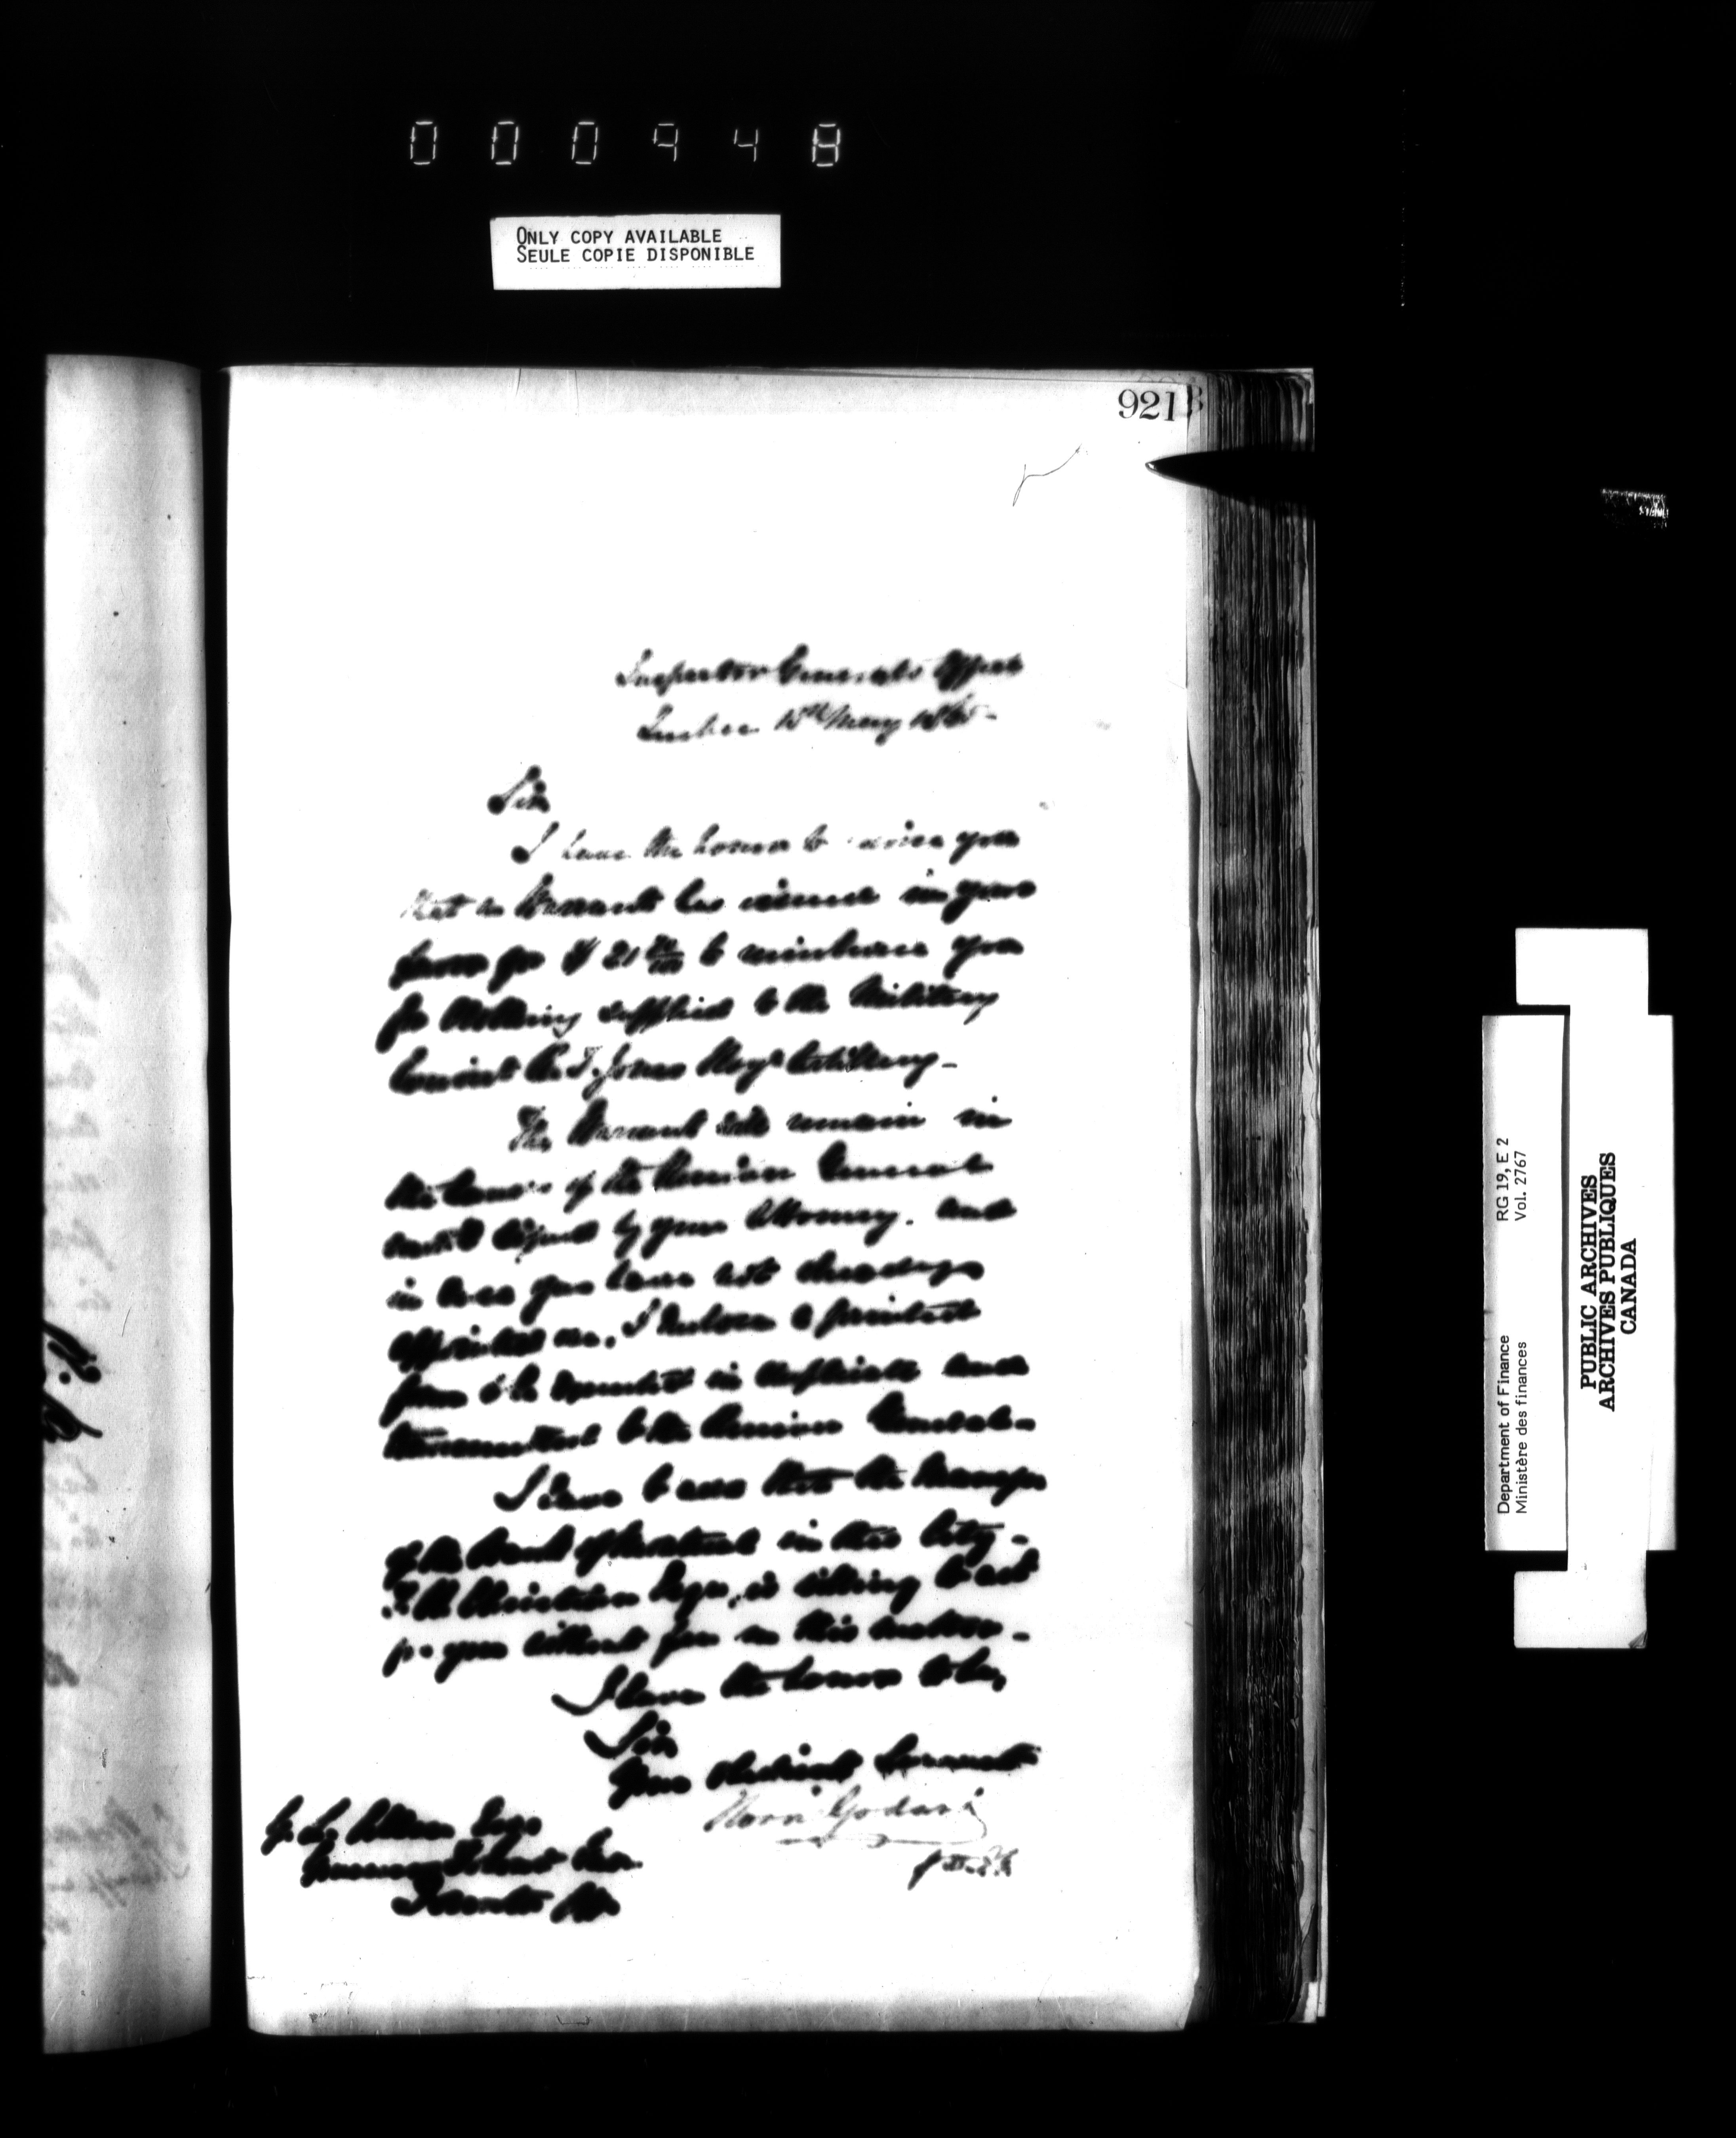 000948
ONLY COPY AVAILABLE
SEULE COPIE DISPONIBLE
921
Inspector General's Office
Quebec 15th May 186
Sir
I have the honor to advise you
that a Warrant has issued in your
favor for $ 21 to reimburse you
for Clothing supplied to the Military
Convict Jones Royl Artillery -
The Warrant will remain in
the hands of the Receiver General
until signed by your Attorney. and
in case you have not already
appointed one, I enclose a printed
form to be executed in duplicate and
transmitted to the Receiver General -
I have to add that the Manager
of the Bank of Montreal in this City -
Christian Esqr, is willing to act
for you without fee in this matter -
I have the honor to be,
Sir
Your obedient Servant
Godard
Esqr
Toronto
RG 19, E 2
Vol. 2767
Department of Finance
Ministère des finances
PUBLIC ARCHIVES
ARCHIVES PUBLIQUES
CANADA